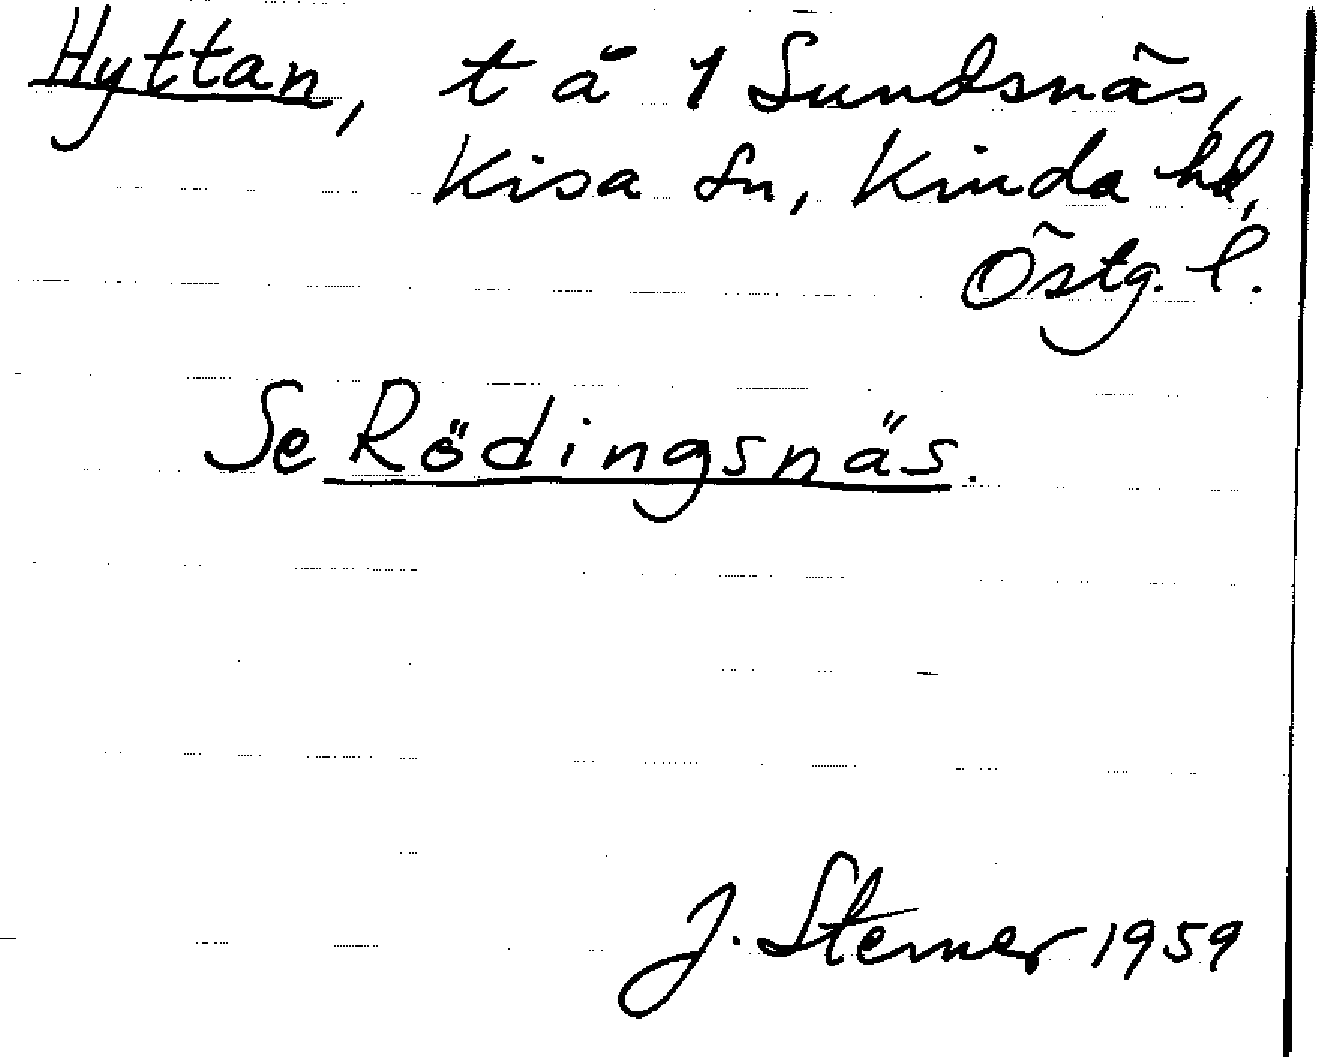 Hyttan, t å 1 Sundsnäs,
Kisa sn, Kinda hd,
Östg. l.
Se Rödingsnäs.
J. Sterner 1959